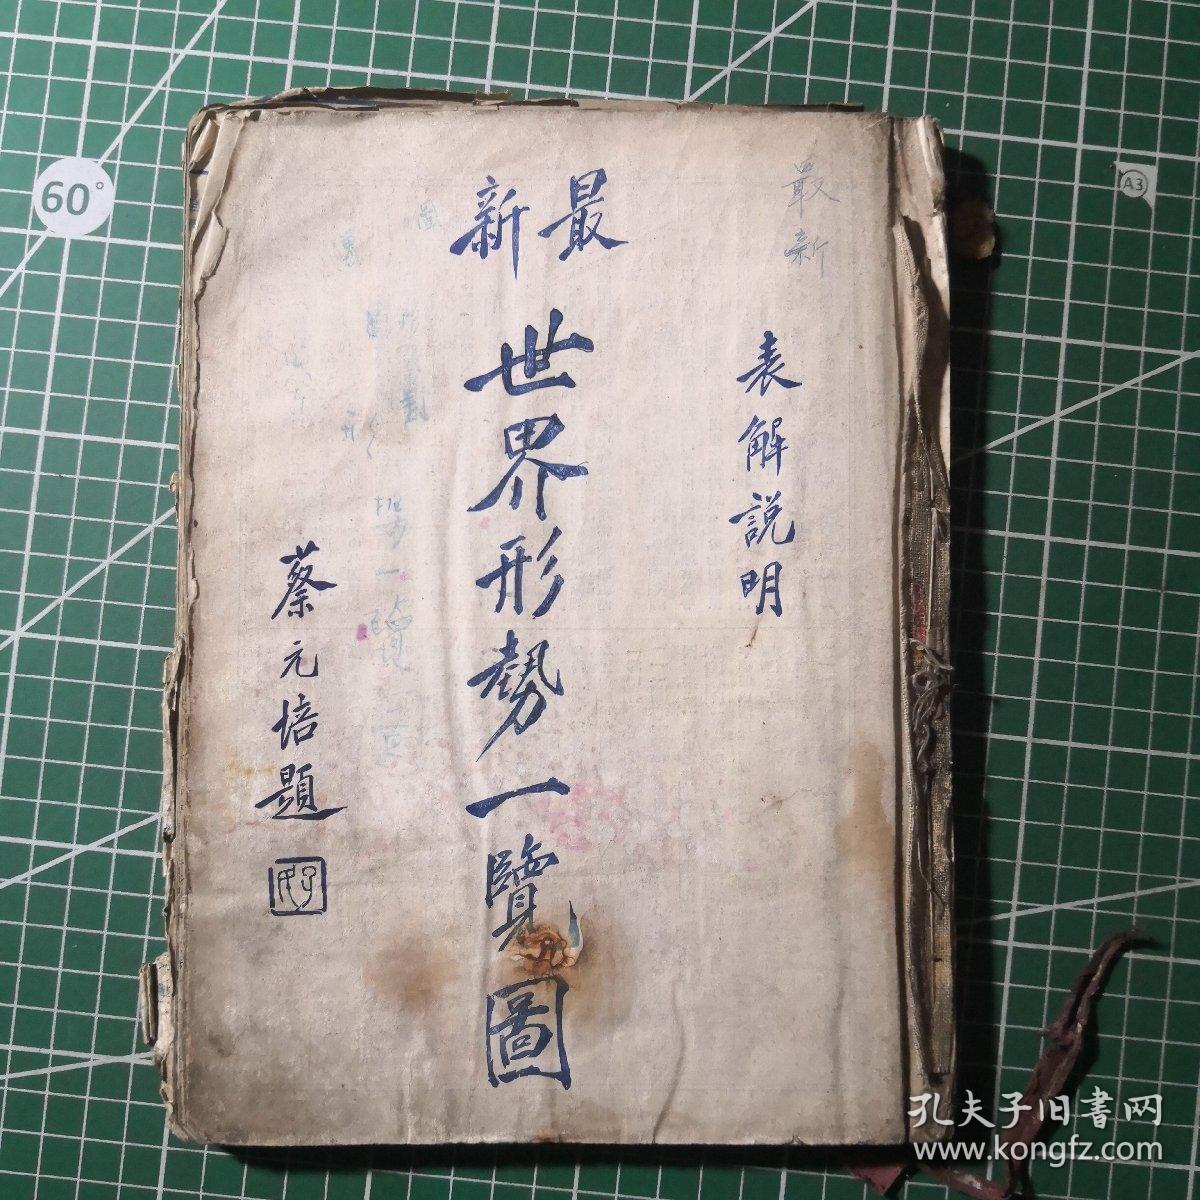 最新
表解説明
最新
世界形勢一覽圖
蔡元培題
60°
A3
孔夫子旧書网
www.kongfz.com